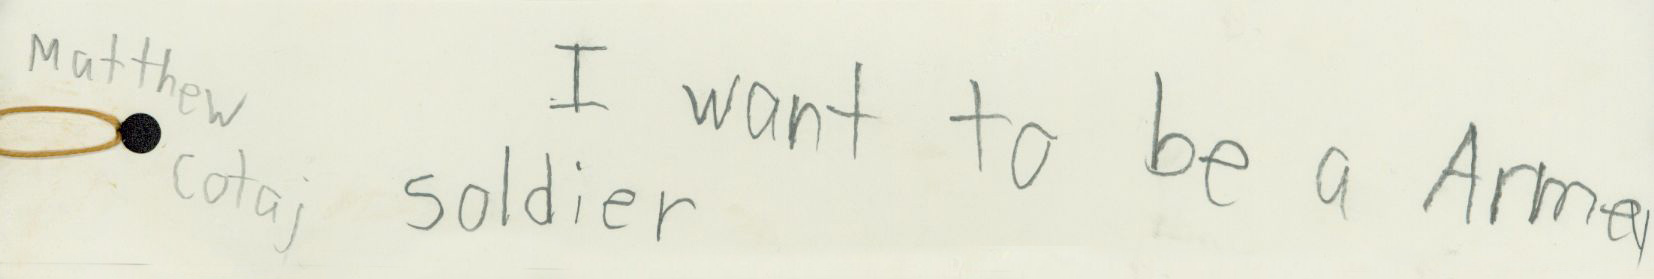 Matthew
Cotaj
I want to be a Armey
soldier